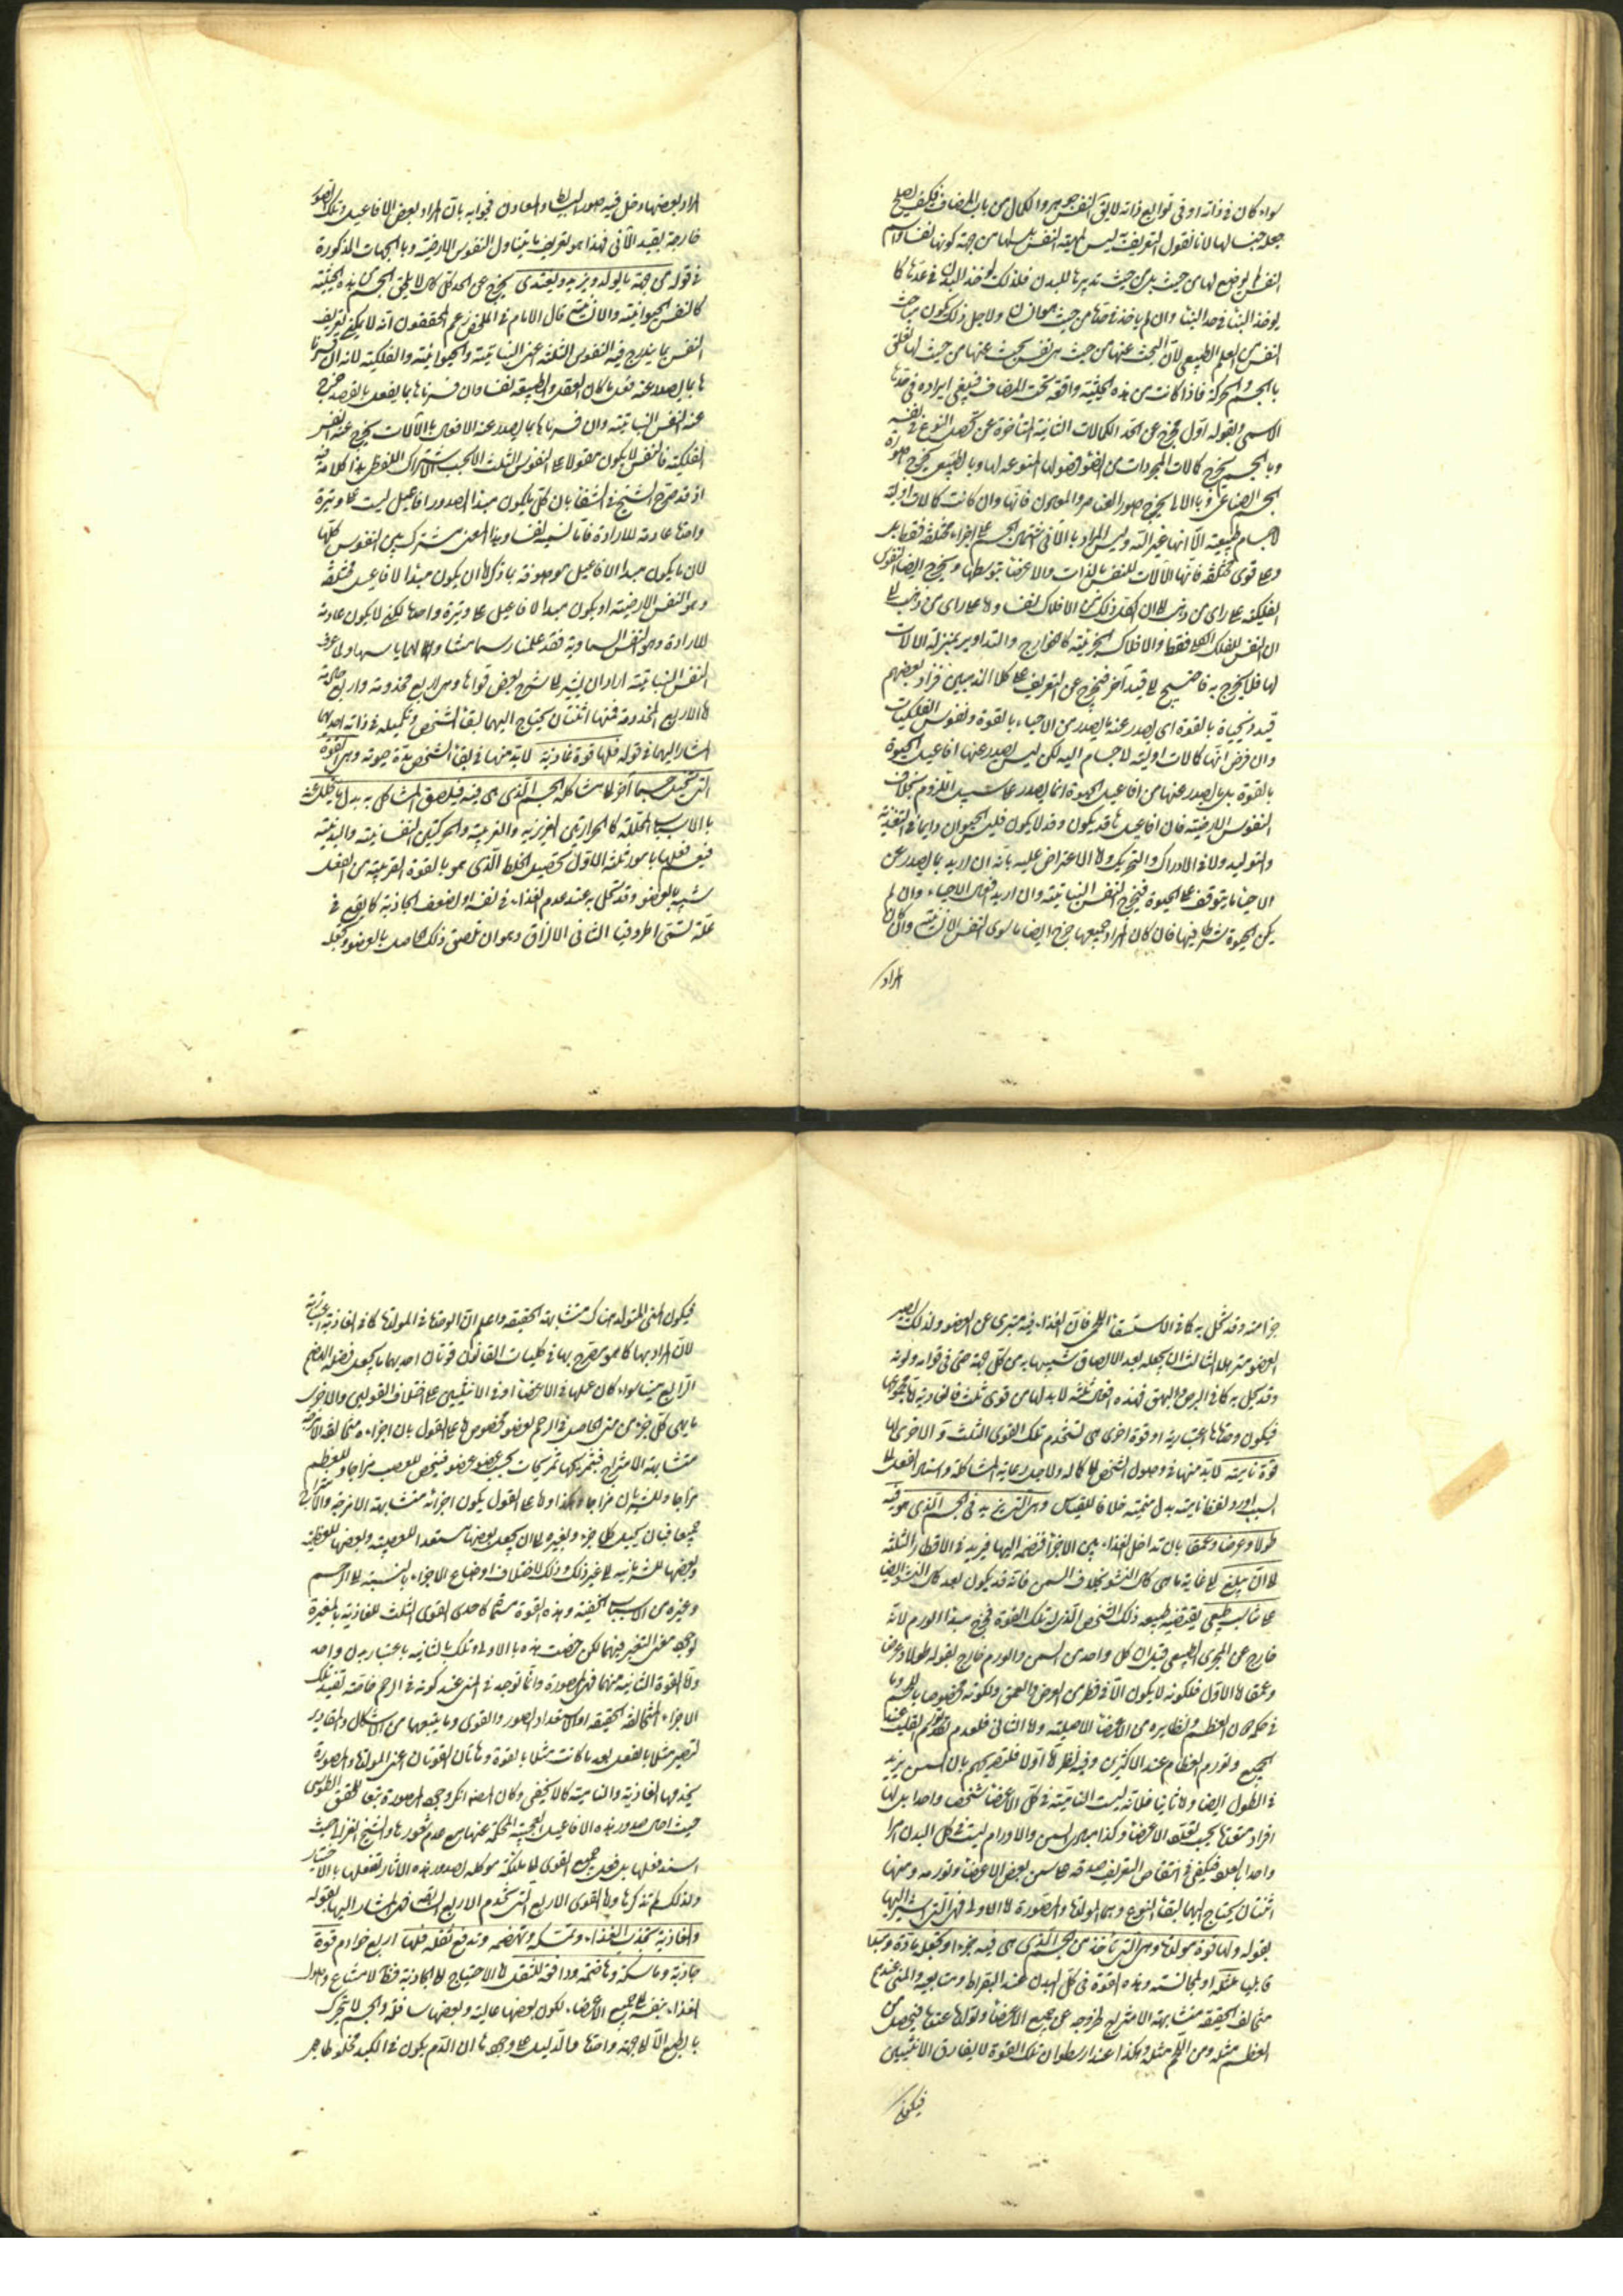 سواء كان فى ذاته او فى توابع ذاته لا يق النفس جوهر والكمال من باب المضاف فكيف يصلح
جعله جنسا لها لانا نقول التعريف ليس لمهية النفس بل لها من جهة كونها نفسا واسم
النفس لم يوضع لها من حيث بل من حيث تدبيرها للبدن فلذلك يوخذ البدن فى حدها كما
يوخذ البناء فى حد البناء وان لم ياخذ فى حده من حيث هو انسان ولاجل ذلك يكون مباحث
النفس من العلم الطبيعى لان البحث عنها من حيث هى نفس بحث عنها من حيث لها تعلق
بالجسم والحركة فاذا كانت من هذه الحيثية واقعة تحت المضاف فينبغى ايراده فى حدها
الاسمى وبقوله اول يخرج عن الحد الكمالات الثانية المتأخرة عن تحصل النوع فى نفسه
وبالجسم يخرج كمالات المجردات من فصولها المنوعة لها وبالطبيعى يخرج صورة
الجسم الصناعى وبالالى يخرج صور العناصر والمعدن فانها وان كانت كمالات اولية
لاجسام طبيعية الا انها غير الية وليس المراد بالآلى اشتمال الجسم على اجزاء مختلفة فقط بل
وعلى قوى مختلفة فانها الآلات للنفس بالذات والاعضاء بتوسطها ويخرج ايضا النفوس
الفلكية على راى من ذهب الى ان لكل فلك من الافلاك نفسا واما على راى من ذهب الى
ان النفس للفلك الكلى فقط والافلاك الجزئية كالخوارج والتداوير بمنزلة الآلات
لها فلا يخرج به فاحتيج الى قيد آخر فيخرج عن التعريف على كلا المذهبين فزاد بعضهم
قيد ذى حياة بالقوة اى يصدر عنه ما يصدر من الاحياء بالقوة ونفوس الفلكيات
وان فرض انها كمالات اولية لاجسام الية لكن ليس يصدر عنها افاعيل الحيوة
بالقوة بل ما يصدر عنها من افاعيل الحيوة انما يصدر على سبيل اللزوم بخلاف
النفوس الارضية فان افاعيلها قد يكون وقد لا يكون فليس الحيوان دايما فى التغذية
والتوليد ولا فى الادراك والتحريك واما الاعتراض عليه بانه ان اريد بما يصدر عن
الاحياء ما يتوقف على الحيوة فيخرج النفس النباتية وان اريد افعال الاحياء وان لم
يكن الحيوة شرطا فيها فان كان المراد جميعها خرج ايضا ما سوى النفس الانسانية وان كان
المراد
المراد بعضها دخل فيه صور البسائط والمعادن فجوابه بان المراد بعض الافاعيل وتلك الصور
خارجة بقيد الآلى فهذا هو تعريف ما يتناول النفوس الارضية وبالجهات المذكورة
فى قوله من جهة ما يتولد ويزيد ويغتذى يخرج عن الحد كل كمال لا يلحق الجسم من هذه الحيثية
كالنفس الحيوانية والانسانية قال الامام فى الملخص زعم المحققون انه لا يمكن تعريف
النفس بما يندرج فيه النفوس الثلثة اعنى النباتية والحيوانية والفلكية لانه ان فسرنا
ها بما يصدر عنه فعل ما كان العقل والطبيعة نفسا وان فسرناها بما يفعل بالقصد خرج
عنه النفس النباتية وان فسرناها بما يصدر عنه الافعال بالآلات يخرج عنه النفس
الفلكية فالنفس لا يكون مقولا على النفوس الثلث الا بحسب الاشتراك اللفظى هذا كلامه فيه
اذ قد صرح الشيخ فى الشفاء بان كل ما يكون مبدأ لصدور افاعيل ليست على وتيرة
واحدة عادمة للارادة فانا نسميه نفسا وهذا المعنى مشترك بين النفوس كلها
لان ما يكون مبدا الافاعيل موصوفة بما ذكر اما ان يكون مبدأ لافاعيل مختلفة
وهو النفس الارضية او يكون مبدا لافاعيل على وتيرة واحدة لكن لا يكون عادمة
للارادة وهو النفس السماوية فقد علمنا رسما
النفس النباتية اراد ان يشير الى شرح بعض قواها وهى اربع مخدومة واربع خادمة
اما الاربع المخدومة فمنها اثنتان يحتاج اليهما لبقاء الشخص وتكميله فى ذاته احدهما
اشار اليها فى قوله فلها قوة غاذية لا بد منها فى بقاء الشخص مدة حيوته وهى القوة
التى تحيل جسما آخر الى مشاكلة الجسم الذى هى فيه فيلصق المشاكل به بدل ما يتحلل عنه
بالاسباب المحللة كالحرارتين الغريزية والغريبة والحركتين النفسانية والبدنية
فيتم فعلها بامور ثلثة الاول تحصيل الخلط الذى هو بالقوة القريبة من الفعل
شبيه بالعضو وقد تخل به عند عدم الغذاء فى نفسه او لضعف الجاذبة كما يقع فى
علة تسمى اطروفيا الثانى الالزاق وهو ان تلصق ذلك الحاصل بالعضو وتجعله
جزا منه وقد تخل به كما فى الاستسقاء اللحمى فان الغذاء فيه متبرى عن العضو ولذلك يصير
العضو مترهلا الثالث ان يجعله بعد الالصاق شبيها به من كل جهة حتى فى قوامه ولونه
وقد يخل به كما فى البرص والبهق فهذه افعال ثلثة لا بد لها من قوى ثلث فالغاذية اما مجموعها
فيكون وحدتها اعتبارية او قوة اخرى هى تستخدم تلك القوى الثلث والاخرى لها
قوة نامية لا بد منها فى وصول الشخص الى كماله ولاجل رعاية المشاكلة واسناد الفعل الى
السبب اورد لفظ نامية بدل منمية خلافا للقياس وهى التى تزيد فى الجسم الذى هو فيه
طولا وعرضا وعمقا بان تداخل الغذاء بين الاجزاء فتضمه اليها فيزيد فى الاقطار الثلثة
الى ان يبلغ الى غاية ما هى كمال النشو بخلاف السمن فانه قد يكون بعد كمال النشو ايضا
على تناسب طبيعى يقتضيه طبيعة ذلك الشخص الذى له تلك القوة فخرج مبدأ الورم لانه
خارج عن المجرى الطبيعى قيل ان كل واحد من السمن والورم خارج بقوله طولا وعرضا
وعمقا اما الاول فلكونه لا يكون الا فى قطرى العرض والعمق ولكونه مخصوصا باللحم وما
فى حكمه دون العظم ونظايره من الاعضاء الاصلية واما الثانى فلعدم تورم القلب عند
الجميع وتورم العظام عند الاكثرين وفيه نظر اما اولا فلتصريحهم بان السمن يزيد
فى الطول ايضا واما ثانيا فلانه ليست النامية فى كل الاعضاء شخصا واحدا بل لها
افراد متعددة بحسب تعدد الاعضاء وكذا مبدأ السمن والاورام ليست فى كل البدن امرا
واحدا بالعدد فيكفى فى انتقاض التعريف صدقه على سمن بعض الاعضاء وتورمه ومنها
اثنتان يحتاج اليهما لبقاء النوع وهما المولدة والمصورة اما الاولى فهى التى اشير اليها
بقوله ولها قوة مولدة وهى التى تأخذ من الجسم الذى هى فيه جزءا وتجعله مادة ومبدا
قابليا لمثله او لمجانسه وهذه القوة فى كل البدن عند ابقراط ومتابعيه والمنى عندهم
متخالف الحقيقة متشابهة الامتزاج لخروجه عن جميع الاعضاء وتولدها عندها فيحصل من
العظم مثله ومن اللحم مثله وهكذا وعند ارسطو ان تلك القوة لا يفارق الانثيين
فيكون
فيكون المنى المتولد هناك متشابهة الحقيقة واعلم ان الوحدة فى المولدة كما فى الغاذية اعتبارية
لان المراد بها كما هو مصرح بها فى كليات القانون قوتان احديهما ما يجعل فضلة الهضم
الرابع منيا سواء كان عملها فى الاعضاء او فى الانثيين على اختلاف القولين والاخرى
ما يهيى كل جزء من المنى الحاصل فى الرحم لعضو مخصوص اما على القول بان اجزاءه متخالفة
متشابهة الامتزاج فتمزجها تمزيجات بحسب عضو عضو فيخص للعصب مزاجا وللعظم
مزاجا وللشريان مزاجا وهكذا واما على القول بكون اجزائه متشابهة الامزجة
جميعا فبان يحيل كل جزء وتغيره الى ان يجعل بعضها مستعدا للعصبية وبعضها للعظمية
وبعضها للشريانية الى غير ذلك وذلك لاختلاف اوضاع الاجزاء بالنسبة الى الرحم
وغيره من الاسباب الخفية وهذه القوة تسمى كاحدى القوى الثلث للغاذية بالمغيرة
لوجود معنى التغير فيهما لكن خصت هذه بالاولى وتلك بالثانية باعتبار بدن واحد
واما القوة الثانية منهما فهى المصورة وانما توجد فى المنى عند كونه فى الرحم خاصة تفيد تلك
الاجزاء المتخالفة الحقيقة او الاستعداد الصور والقوى وما يتبعهما من الاشكال والمقادير
لتصير مثلا بالفعل بعد ما كانت مثلا بالقوة وهاتان القوتان اعنى المولدة والمصورة
يخدمها الغاذية والنامية كما لا يخفى وكان المصنف انكر وجود المصورة تبعا للمحقق الطوسى
حيث احال صدور هذه الافاعيل العجيبة المحكمة عنها مع عدم شعورها والشيخ الغزالى حيث
اسند فعلها بل فعل جميع القوى الى ملئكة موكلة بصدور هذه الآثار تفعلها بالاختيار
ولذلك لم تذكرها واما القوى الاربع التى تخدم الاربع السابقة فهى المشار اليها بقوله
والغاذية تجذب الغذاء وتمسكه وتهضمه وتدفع ثفله فلها اربع خوادم قوة
جاذبة وماسكة وهاضمة ودافعة للثفل اما الاحتياج الى الجاذبة فظ لامتناع وصول
الغذاء بنفسه الى جميع الاعضاء لكون بعضها عالية وبعضها سافلة والجسم لا يتحرك
بالطبع الا الى جهة واحدة والدليل على وجودها ان الدم يكون فى الكبد مخلوطا